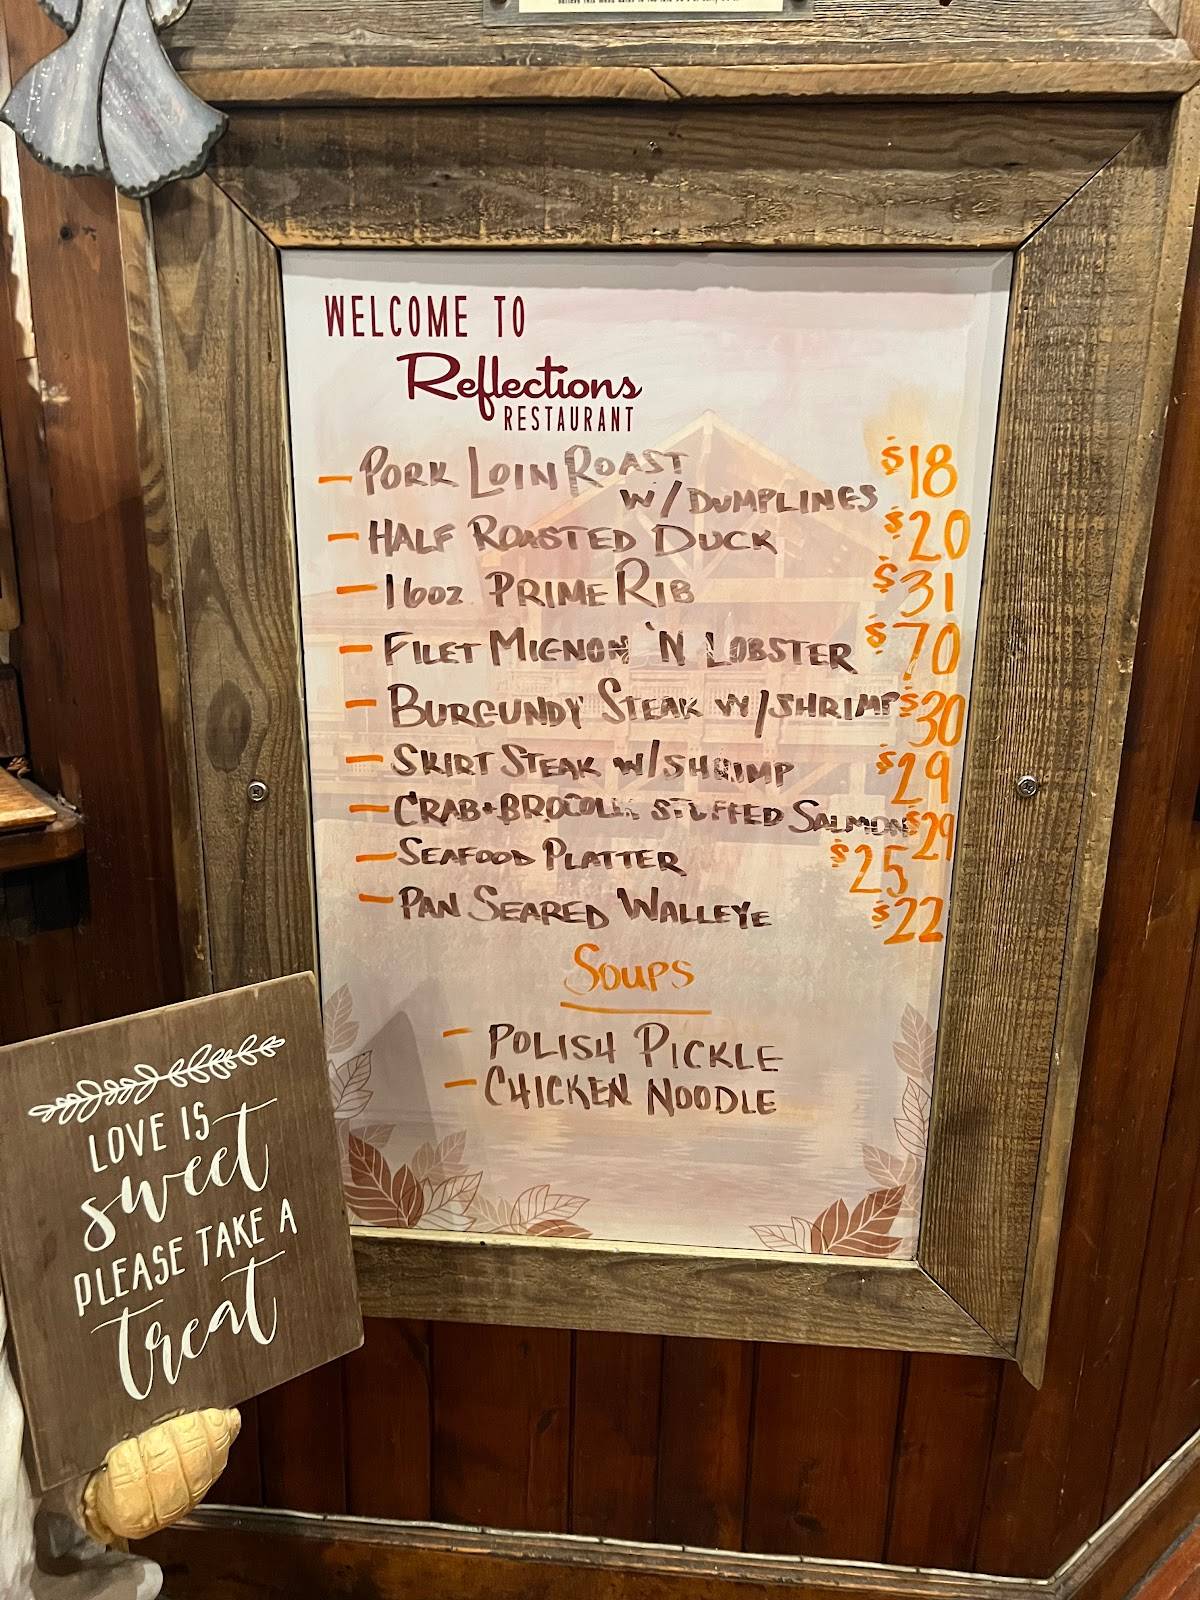 WELCOME TO
Reflections
RESTAURANT
– PORK LOIN ROAST
W/DUMPLINES $18
– HALF ROASTED DUCK $20
– 16oz PRIME RIB $31
– FILET MIGNON 'N LOBSTER $70
– BURGUNDY STEAK W/SHRIMP $30
– SKIRT STEAK W/SHRIMP $29
– CRAB+BROCOLLI STUFFED SALMON $29
– SEAFOOD PLATTER $25
– PAN SEARED WALLEYE $22
SOUPS
– POLISH PICKLE
– CHICKEN NOODLE
LOVE IS
sweet
PLEASE TAKE A
treat